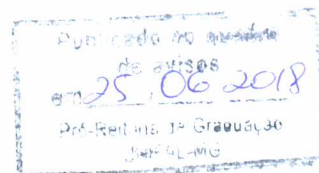 Publicado no quadro
de avisos
em 25 06 2018
Pró-Reitoria de Graduação
UNIFAL-MG